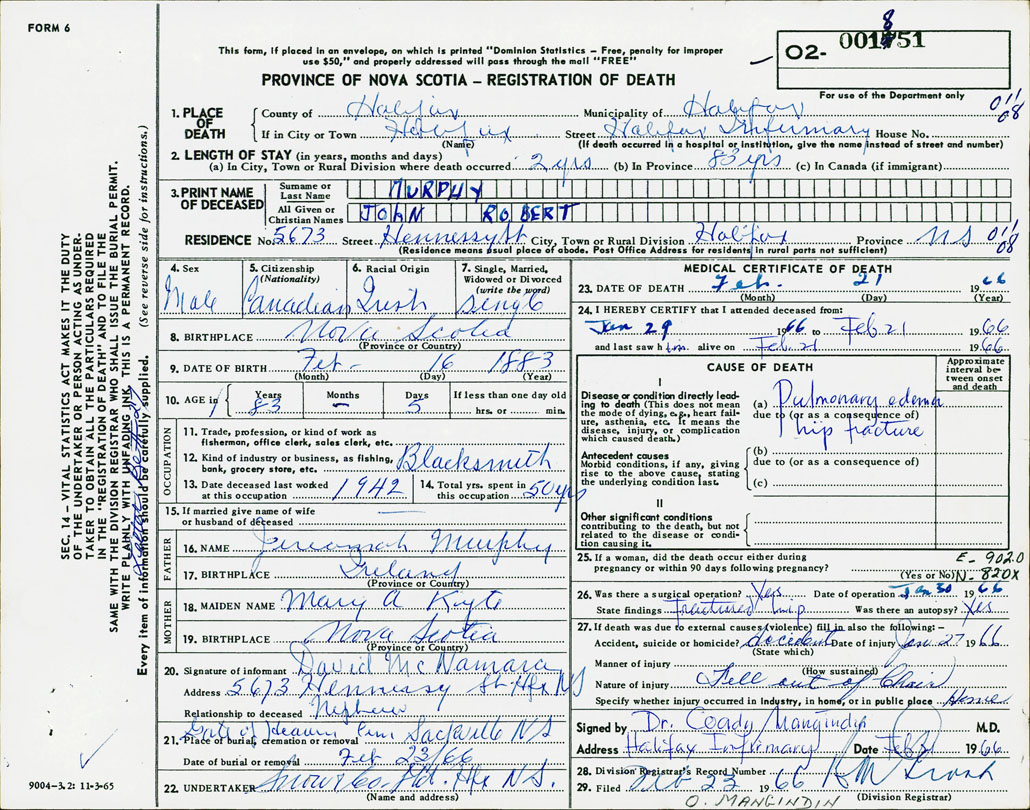 FORM 6
This form, if placed in an envelope, on which is printed "Dominion Statistics – Free, penalty for improper
use $50," and properly addressed will pass through the mail "FREE"
PROVINCE OF NOVA SCOTIA – REGISTRATION OF DEATH
O2- 001851
For use of the Department only
1. PLACE OF DEATH County of Halifax Municipality of Halifax 011
If in City or Town Halifax Street Halifax Infirmary House No. 08
(Name) (If death occurred in a hospital or institution, give the name instead of street and number)
2. LENGTH OF STAY (in years, months and days)
(a) In City, Town or Rural Division where death occurred 2 yrs (b) In Province 83 yrs (c) In Canada (if immigrant)
3. PRINT NAME OF DECEASED Surname or Last Name MURPHY
All Given or Christian Names JOHN ROBERT
RESIDENCE No. 5673 Street Hennessy St City, Town or Rural Division Halifax Province NS 011
(Residence means usual place of abode. Post Office Address for residents in rural parts not sufficient) 08
4. Sex Male
5. Citizenship (Nationality) Canadian
6. Racial Origin Irish
7. Single, Married, Widowed or Divorced (write the word) Single
8. BIRTHPLACE Nova Scotia
(Province or Country)
9. DATE OF BIRTH Feb 16 1883
(Month) (Day) (Year)
10. AGE in Years 83 Months – Days 5 If less than one day old hrs. or min.
OCCUPATION
11. Trade, profession, or kind of work as fisherman, office clerk, sales clerk, etc.
12. Kind of industry or business, as fishing, bank, grocery store, etc. Blacksmith
13. Date deceased last worked at this occupation 1942
14. Total yrs. spent in this occupation 50 yrs
15. If married give name of wife or husband of deceased
FATHER
16. NAME Jeremiah Murphy
17. BIRTHPLACE Ireland
(Province or Country)
MOTHER
18. MAIDEN NAME Mary A Kyte
19. BIRTHPLACE Nova Scotia
(Province or Country)
20. Signature of informant David McNamara
Address 5673 Hennessy St Hfx NS
Relationship to deceased Nephew
21. Place of burial, cremation or removal Gate of Heaven Cem Sackville NS
Date of burial or removal Feb 23/66
22. UNDERTAKER Snow Co. Ltd. Hfx N.S.
(Name and address)
MEDICAL CERTIFICATE OF DEATH
23. DATE OF DEATH Feb. 21 1966
(Month) (Day) (Year)
24. I HEREBY CERTIFY that I attended deceased from:
Jan 29 1966 to Feb 21 1966
and last saw him alive on Feb. 21 1966
CAUSE OF DEATH
Approximate interval between onset and death
I
Disease or condition directly leading to death (This does not mean the mode of dying, e.g., heart failure, asthenia, etc. It means the disease, injury, or complication which caused death.)
(a) Pulmonary edema
due to (or as a consequence of)
hip fracture
Antecedent causes
Morbid conditions, if any, giving rise to the above cause, stating the underlying condition last.
(b)
due to (or as a consequence of)
(c)
II
Other significant conditions
contributing to the death, but not related to the disease or condition causing it.
25. If a woman, did the death occur either during E-902.0
pregnancy or within 90 days following pregnancy? (Yes or No) N-820X
26. Was there a surgical operation? Yes Date of operation Jan 30 1966
State findings Fractured hip Was there an autopsy? Yes
27. If death was due to external causes (violence) fill in also the following:–
Accident, suicide or homicide? accident Date of injury Jan 27 1966
(State which)
Manner of injury
(How sustained)
Nature of injury Fell out of Chair
Specify whether injury occurred in Industry, in home, or in public place Home
Signed by Dr. Coady Mangindin M.D.
Address Halifax Infirmary Date Feb 21 1966
28. Division Registrar's Record Number
29. Filed 23 1966
(Division Registrar)
O. MANGINDIN
SEC. 14 – VITAL STATISTICS ACT MAKES IT THE DUTY
OF THE UNDERTAKER OR PERSON ACTING AS UNDER-
TAKER TO OBTAIN ALL THE PARTICULARS REQUIRED
IN THE "REGISTRATION OF DEATH" AND TO FILE THE
SAME WITH THE DIVISION REGISTRAR WHO SHALL ISSUE THE BURIAL PERMIT.
WRITE PLAINLY WITH UNFADING INK, THIS IS A PERMANENT RECORD.
Every item of information should be carefully supplied. (See reverse side for instructions.)
9004-3.2: 11-3-65